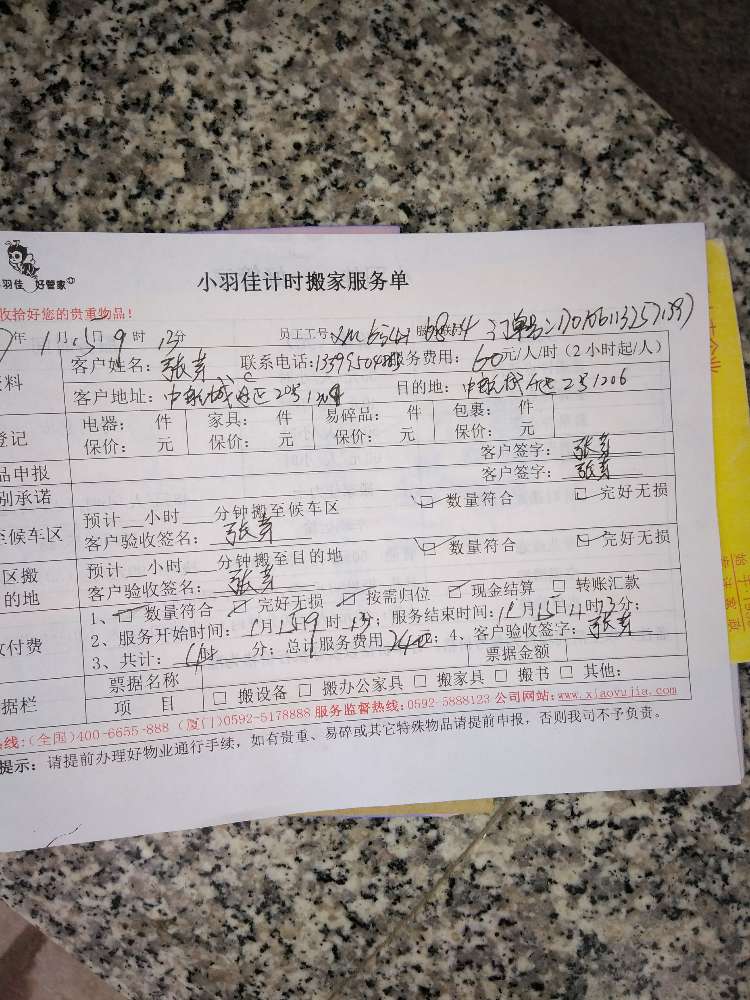 羽佳 好管家
小羽佳计时搬家服务单
收拾好您的贵重物品!
年 1月15日 9时 13分 员工工号
客户姓名: 联系电话: 服务费用: 60元/人/时 (2小时起/人)
客户地址: 中航城C区2号 目的地: 中航城 区2号1206
登记 电器: 件 家具: 件 易碎品: 件 包裹: 件
保价: 元 保价: 元 保价: 元 保价: 元
品申报 客户签字:
别承诺 客户签字:
至候车区 预计 小时 分钟搬至候车区 数量符合 完好无损
客户验收签名:
区搬 预计 小时 分钟搬至目的地 数量符合 完好无损
的地 客户验收签名:
付费 1、 数量符合 完好无损 按需归位 现金结算 转账汇款
2、服务开始时间: 1月15日9时13分; 服务结束时间: 1月15日11时13分;
3、共计: 4时 分; 总计服务费用 240元; 4、客户验收签字:
据栏 票据名称 票据金额
项 目 搬设备 搬办公家具 搬家具 搬书 其他:
线:(全国)400-6655-888 (厦门)0592-5178888 服务监督热线:0592-5888123 公司网站:www.xiaoyujia.com
提示: 请提前办理好物业通行手续, 如有贵重、易碎或其它特殊物品请提前申报, 否则我司不予负责。